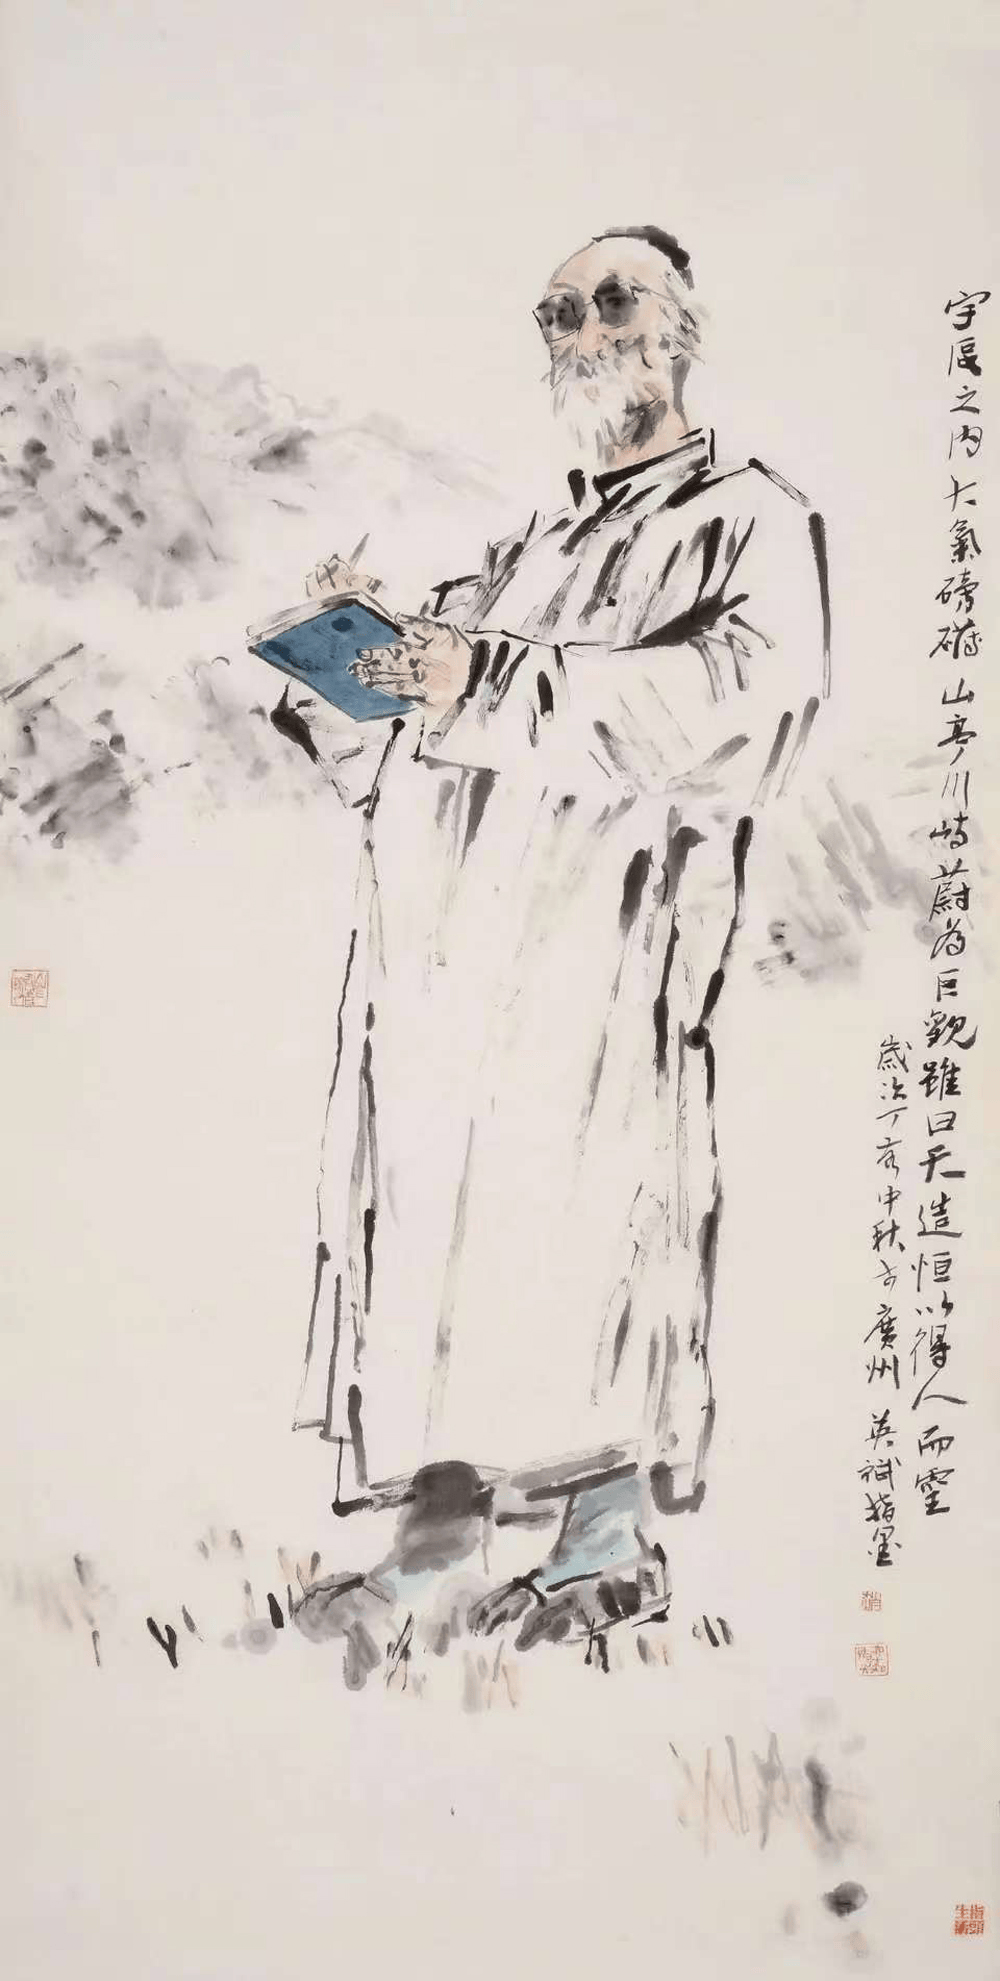 宇辰之内大氣磅礴山亭川峙蔚為巨觀雖曰天造恒以得人而霊
歲次丁亥中秋於廣州 英斌指墨